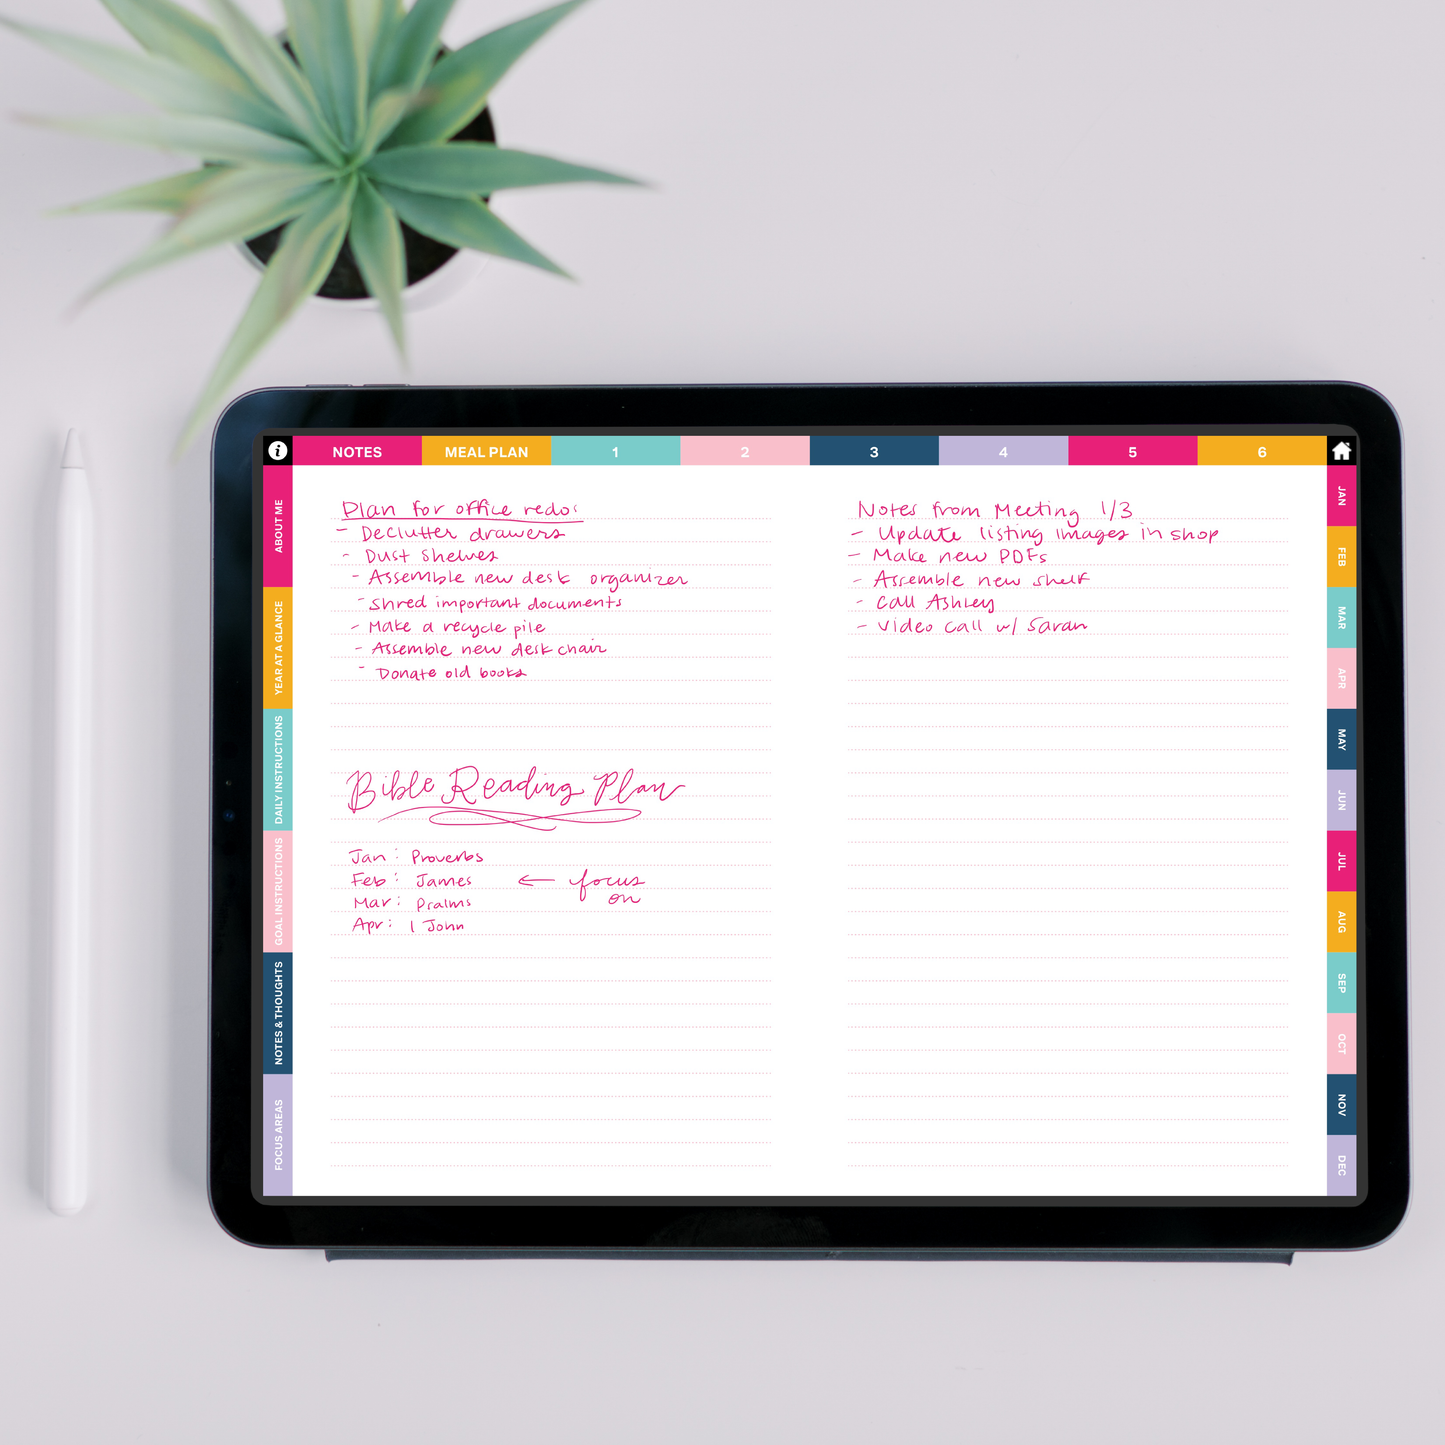 NOTES
MEAL PLAN
1
2
3
4
5
6
ABOUT ME
YEAR AT A GLANCE
DAILY INSTRUCTIONS
GOAL INSTRUCTIONS
NOTES & THOUGHTS
FOCUS AREAS
Plan for office redo:
- Declutter drawers
- Dust Shelves
- Assemble new desk organizer
- Shred important documents
- Make a recycle pile
- Assemble new desk chair
- Donate old books
Bible Reading Plan
Jan: Proverbs
Feb: James ← focus
on
Mar: Psalms
Apr: 1 John
Notes from Meeting 1/3
- Update listing images in shop
- Make new PDFs
- Assemble new shelf
- Call Ashley
- Video call w/ Sarah
JAN
FEB
MAR
APR
MAY
JUN
JUL
AUG
SEP
OCT
NOV
DEC